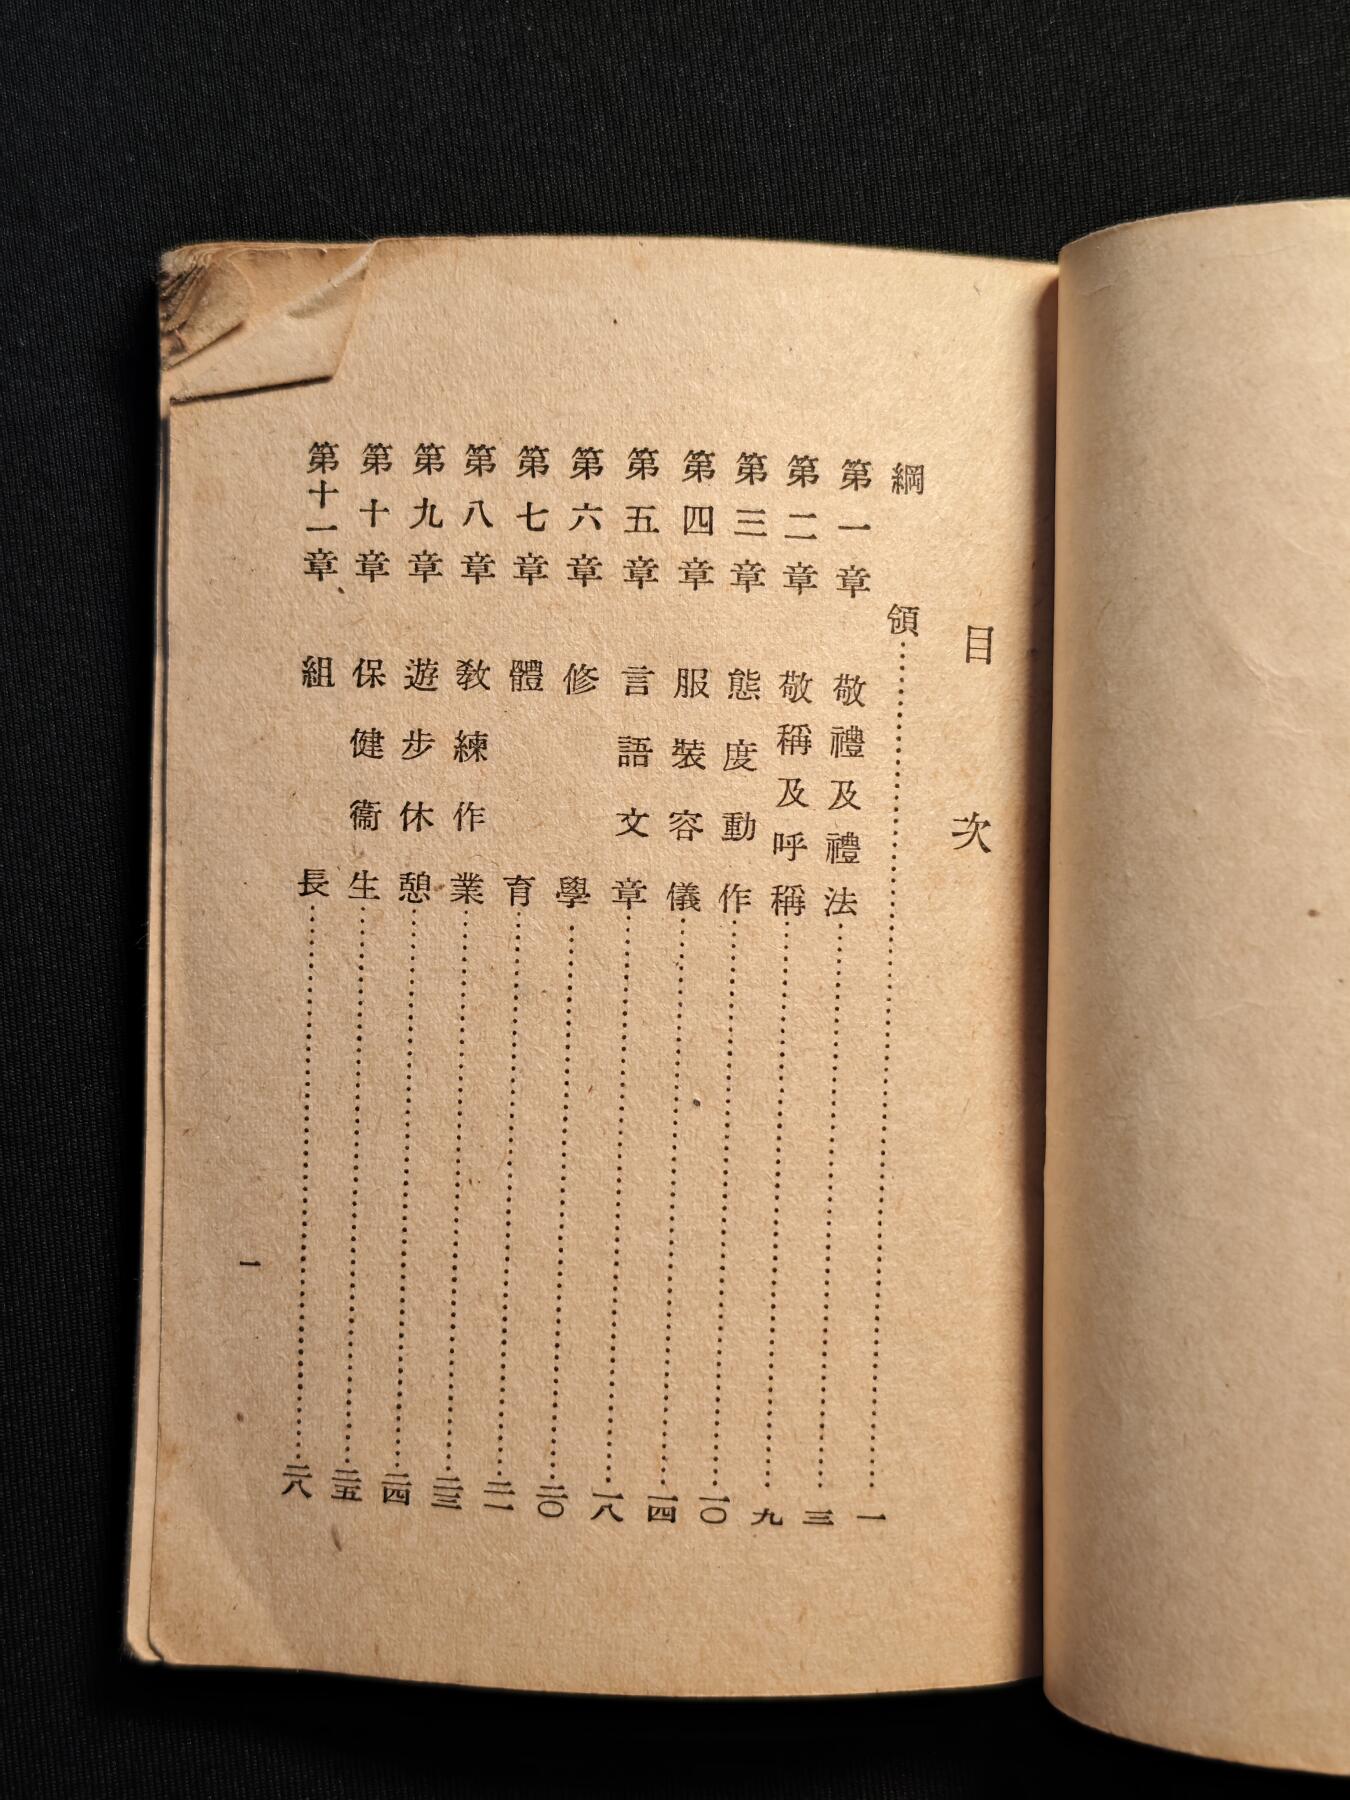 目次
綱領……一
第一章 敬禮及禮法……三
第二章 敬稱及呼稱……九
第三章 態度動作……一〇
第四章 服裝容儀……一四
第五章 言語文章……一八
第六章 修學……二〇
第七章 體育……二一
第八章 教練作業……二三
第九章 遊步休憩……二四
第十章 保健衞生……二五
第十一章 組長……二八
一